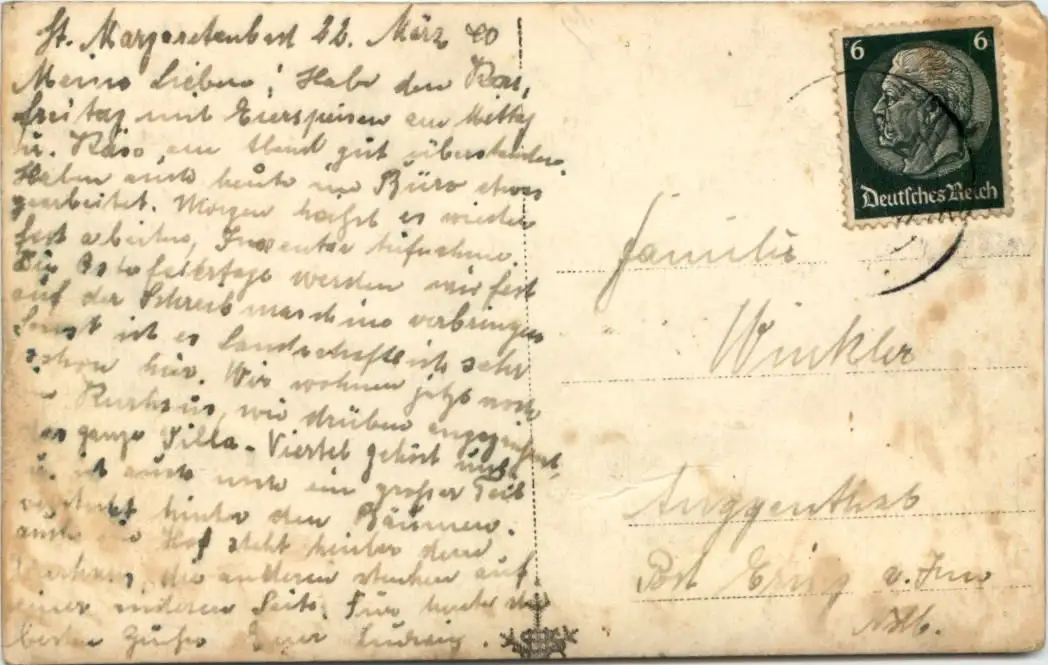 St. Margaretenbad 22. März 40
Meine Lieben! Habe den Kar-
freitag mit Eierspeisen am Mittag
u. Käse am Abend gut überstanden.
Haben auch heute im Büro etwas
gearbeitet. Morgen heißt es wieder
fest arbeiten, Inventar aufnehmen.
Die Osterfeiertage werden wir fest
auf der Schreibmaschine verbringen
Sonst ist es landschaftlich sehr
schön hier. Wir wohnen jetzt noch
im Kurhaus, wie drüben angezeichnet,
das ganze Villa-Viertel gehört uns
u. ist auch noch ein großer Teil
versteckt hinter den Bäumen.
auch ein Hof steht hinter dem
Kurhaus, die anderen stehen auf
einer anderen Seite. Für heute die
besten Grüße Euer Ludwig.
6 6
Deutsches Reich
Familie
Winkler
Post Ering a. Inn
Ndb.